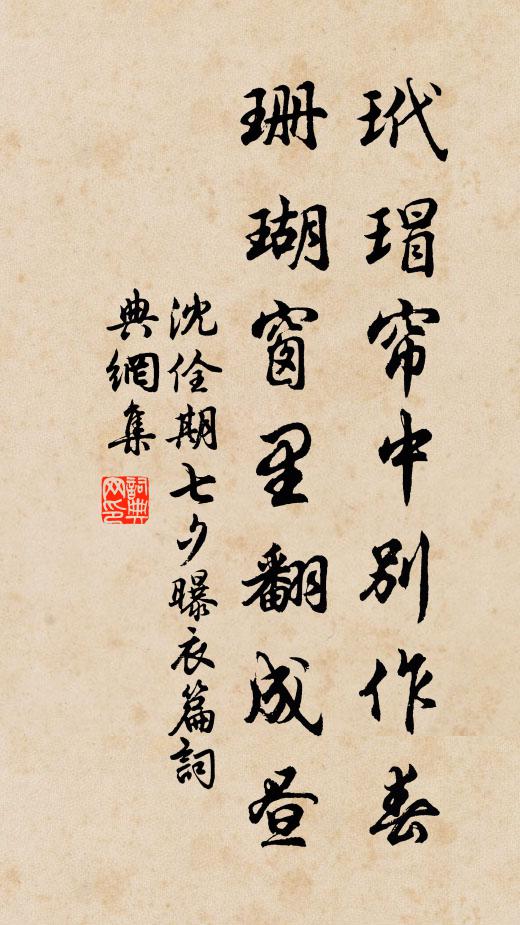 玳瑁帘中别作春
珊瑚窗里翻成昼
沈佺期七夕曝衣篇詞
典網集
詞典
网印